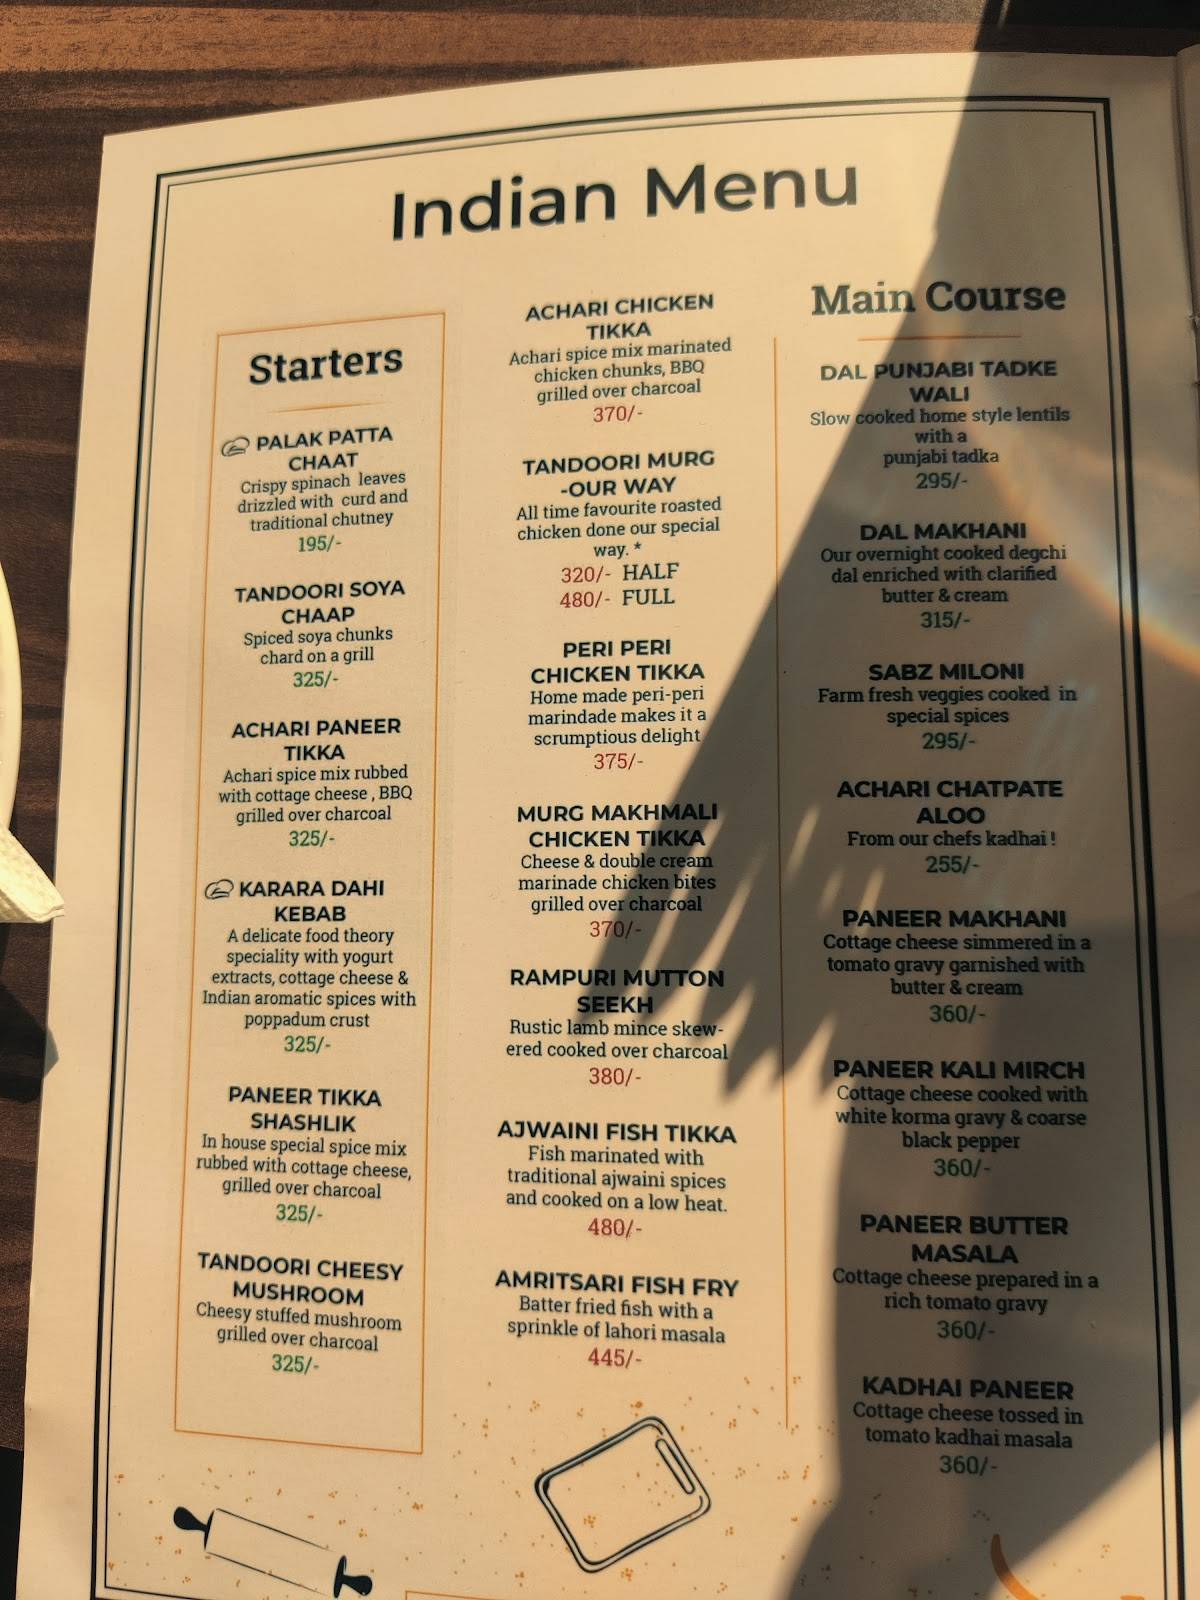 Indian Menu
Starters
PALAK PATTA
CHAAT
Crispy spinach leaves
drizzled with curd and
traditional chutney
195/-
TANDOORI SOYA
CHAAP
Spiced soya chunks
chard on a grill
325/-
ACHARI PANEER
TIKKA
Achari spice mix rubbed
with cottage cheese , BBQ
grilled over charcoal
325/-
KARARA DAHI
KEBAB
A delicate food theory
speciality with yogurt
extracts, cottage cheese &
Indian aromatic spices with
poppadum crust
325/-
PANEER TIKKA
SHASHLIK
In house special spice mix
rubbed with cottage cheese,
grilled over charcoal
325/-
TANDOORI CHEESY
MUSHROOM
Cheesy stuffed mushroom
grilled over charcoal
325/-
ACHARI CHICKEN
TIKKA
Achari spice mix marinated
chicken chunks, BBQ
grilled over charcoal
370/-
TANDOORI MURG
-OUR WAY
All time favourite roasted
chicken done our special
way. *
320/- HALF
480/- FULL
PERI PERI
CHICKEN TIKKA
Home made peri-peri
marindade makes it a
scrumptious delight
375/-
MURG MAKHMALI
CHICKEN TIKKA
Cheese & double cream
marinade chicken bites
grilled over charcoal
370/-
RAMPURI MUTTON
SEEKH
Rustic lamb mince skew-
ered cooked over charcoal
380/-
AJWAINI FISH TIKKA
Fish marinated with
traditional ajwaini spices
and cooked on a low heat.
480/-
AMRITSARI FISH FRY
Batter fried fish with a
sprinkle of lahori masala
445/-
Main Course
DAL PUNJABI TADKE
WALI
Slow cooked home style lentils
with a
punjabi tadka
295/-
DAL MAKHANI
Our overnight cooked degchi
dal enriched with clarified
butter & cream
315/-
SABZ MILONI
Farm fresh veggies cooked in
special spices
295/-
ACHARI CHATPATE
ALOO
From our chefs kadhai !
255/-
PANEER MAKHANI
Cottage cheese simmered in a
tomato gravy garnished with
butter & cream
360/-
PANEER KALI MIRCH
Cottage cheese cooked with
white korma gravy & coarse
black pepper
360/-
PANEER BUTTER
MASALA
Cottage cheese prepared in a
rich tomato gravy
360/-
KADHAI PANEER
Cottage cheese tossed in
tomato kadhai masala
360/-